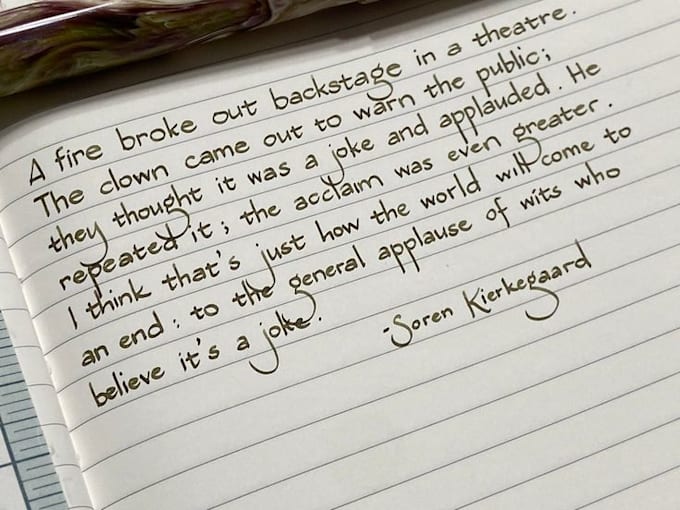 A fire broke out backstage in a theatre.
The clown came out to warn the public;
they thought it was a joke and applauded. He
repeated it; the acclaim was even greater.
I think that's just how the world will come to
an end: to the general applause of wits who
believe it's a joke.
-Soren Kierkegaard